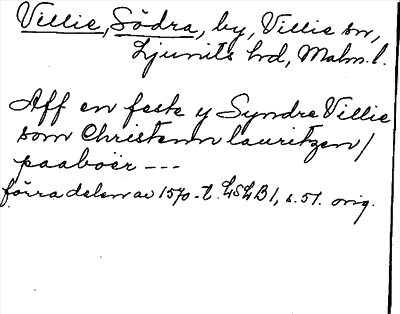 Villie, Södra, by, Villie sn,
Ljunits hd, Malm. l.
Aff en feste y Syndre Villie
som Christenn lauritzen /
paaboer ---
förra delen av 1570-t. LSLB1, s. 51. orig.